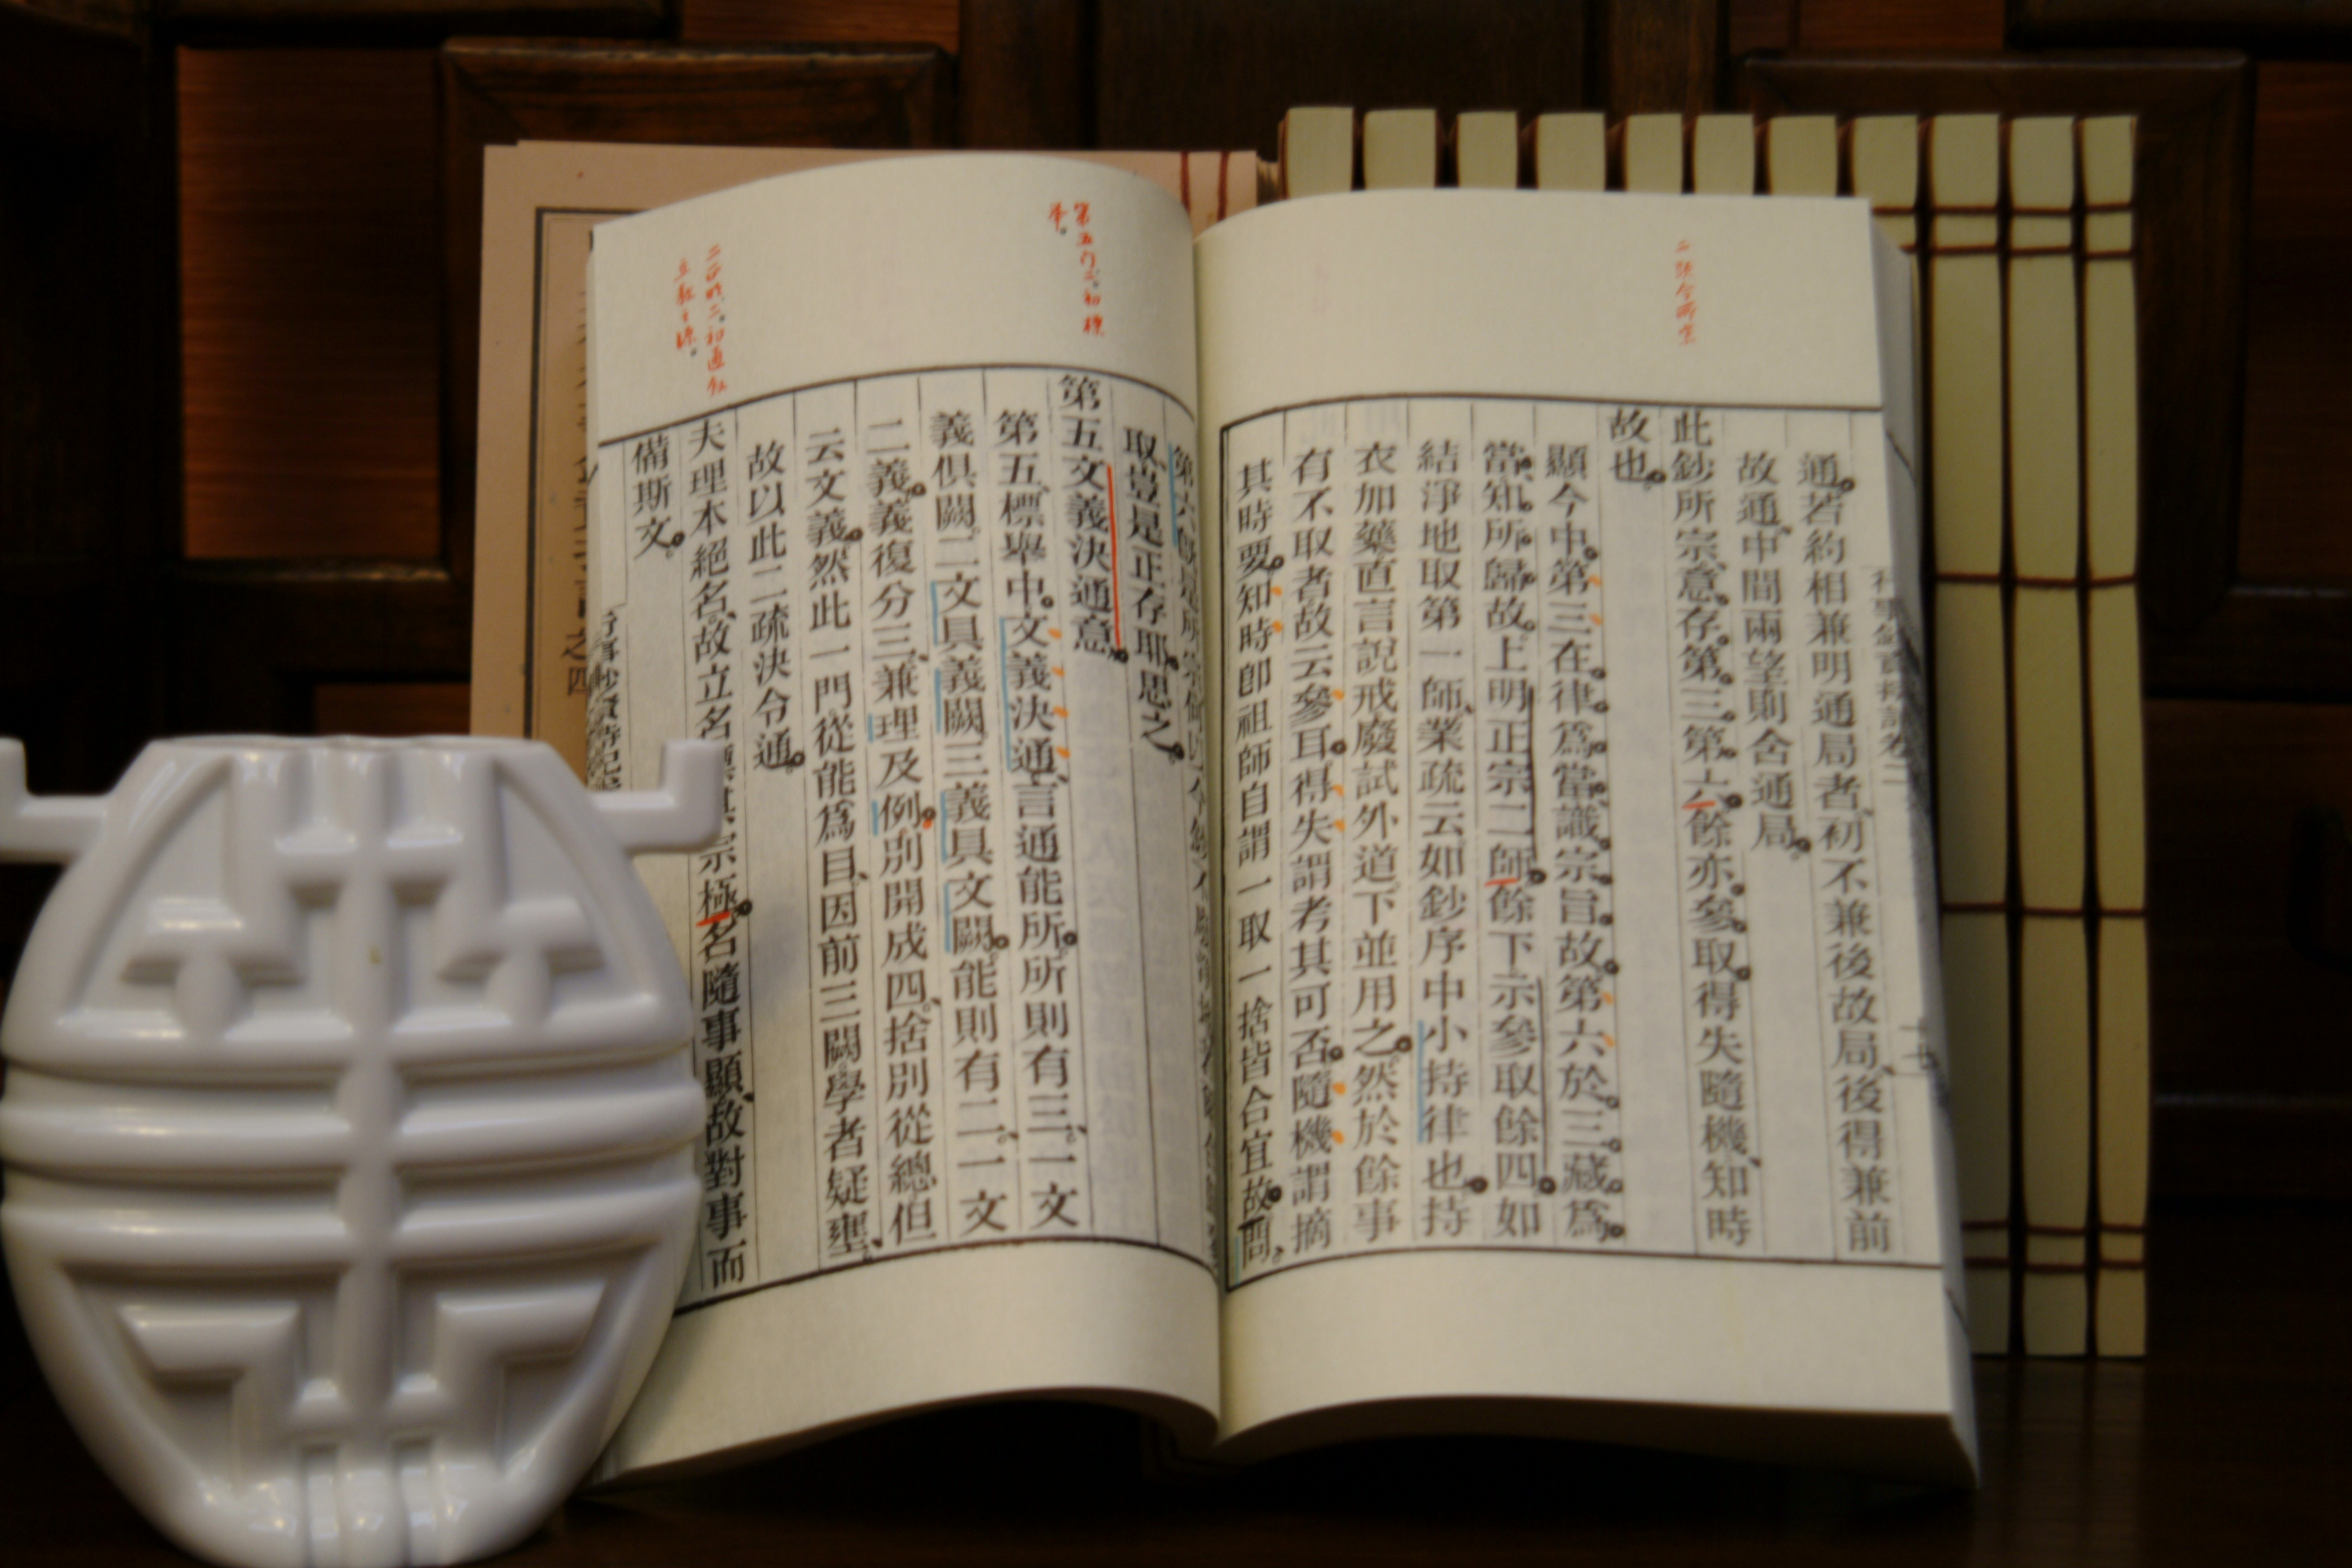 二
通若約相兼明通局者初不兼後故局後得兼前
故通中間兩望則含通局
此鈔所宗意存第三第六餘亦參取得失隨機知時
故也
顯今中第三在律為當識宗旨故第六於三藏為
當知所歸故上明正宗二師餘下示參取餘四如
結淨地取第一師業疏云如鈔序中小持律也持
衣加藥直言說戒廢試外道下並用之然於餘事
有不取者故云參耳得失謂考其可否隨機謂摘
其時要知時即祖師自謂一取一捨皆合宜故問
第六
取豈是正存耶思之
第五
初標
第五文義決通意
第五標舉中文義決通言通能所所則有三一文
義俱闕二文具義闕三義具文闕能則有二一文
二義義復分三兼理及例別開成四捨別從總但
云文義然此一門從能為目因前三闕學者疑壅
故以此二疏決令通
夫理本絕名故立名
宗極名隨事顯故對事而
備斯文
之四